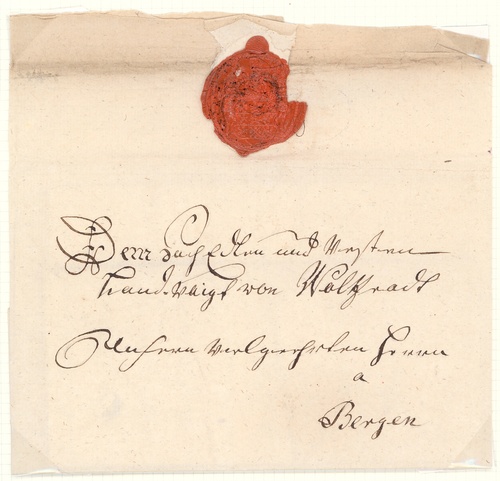 Dem HochEdlen und Vesten
Land Vaigt von Wolffradt
Unsern Vielgeehrten Herrn
a
Bergen